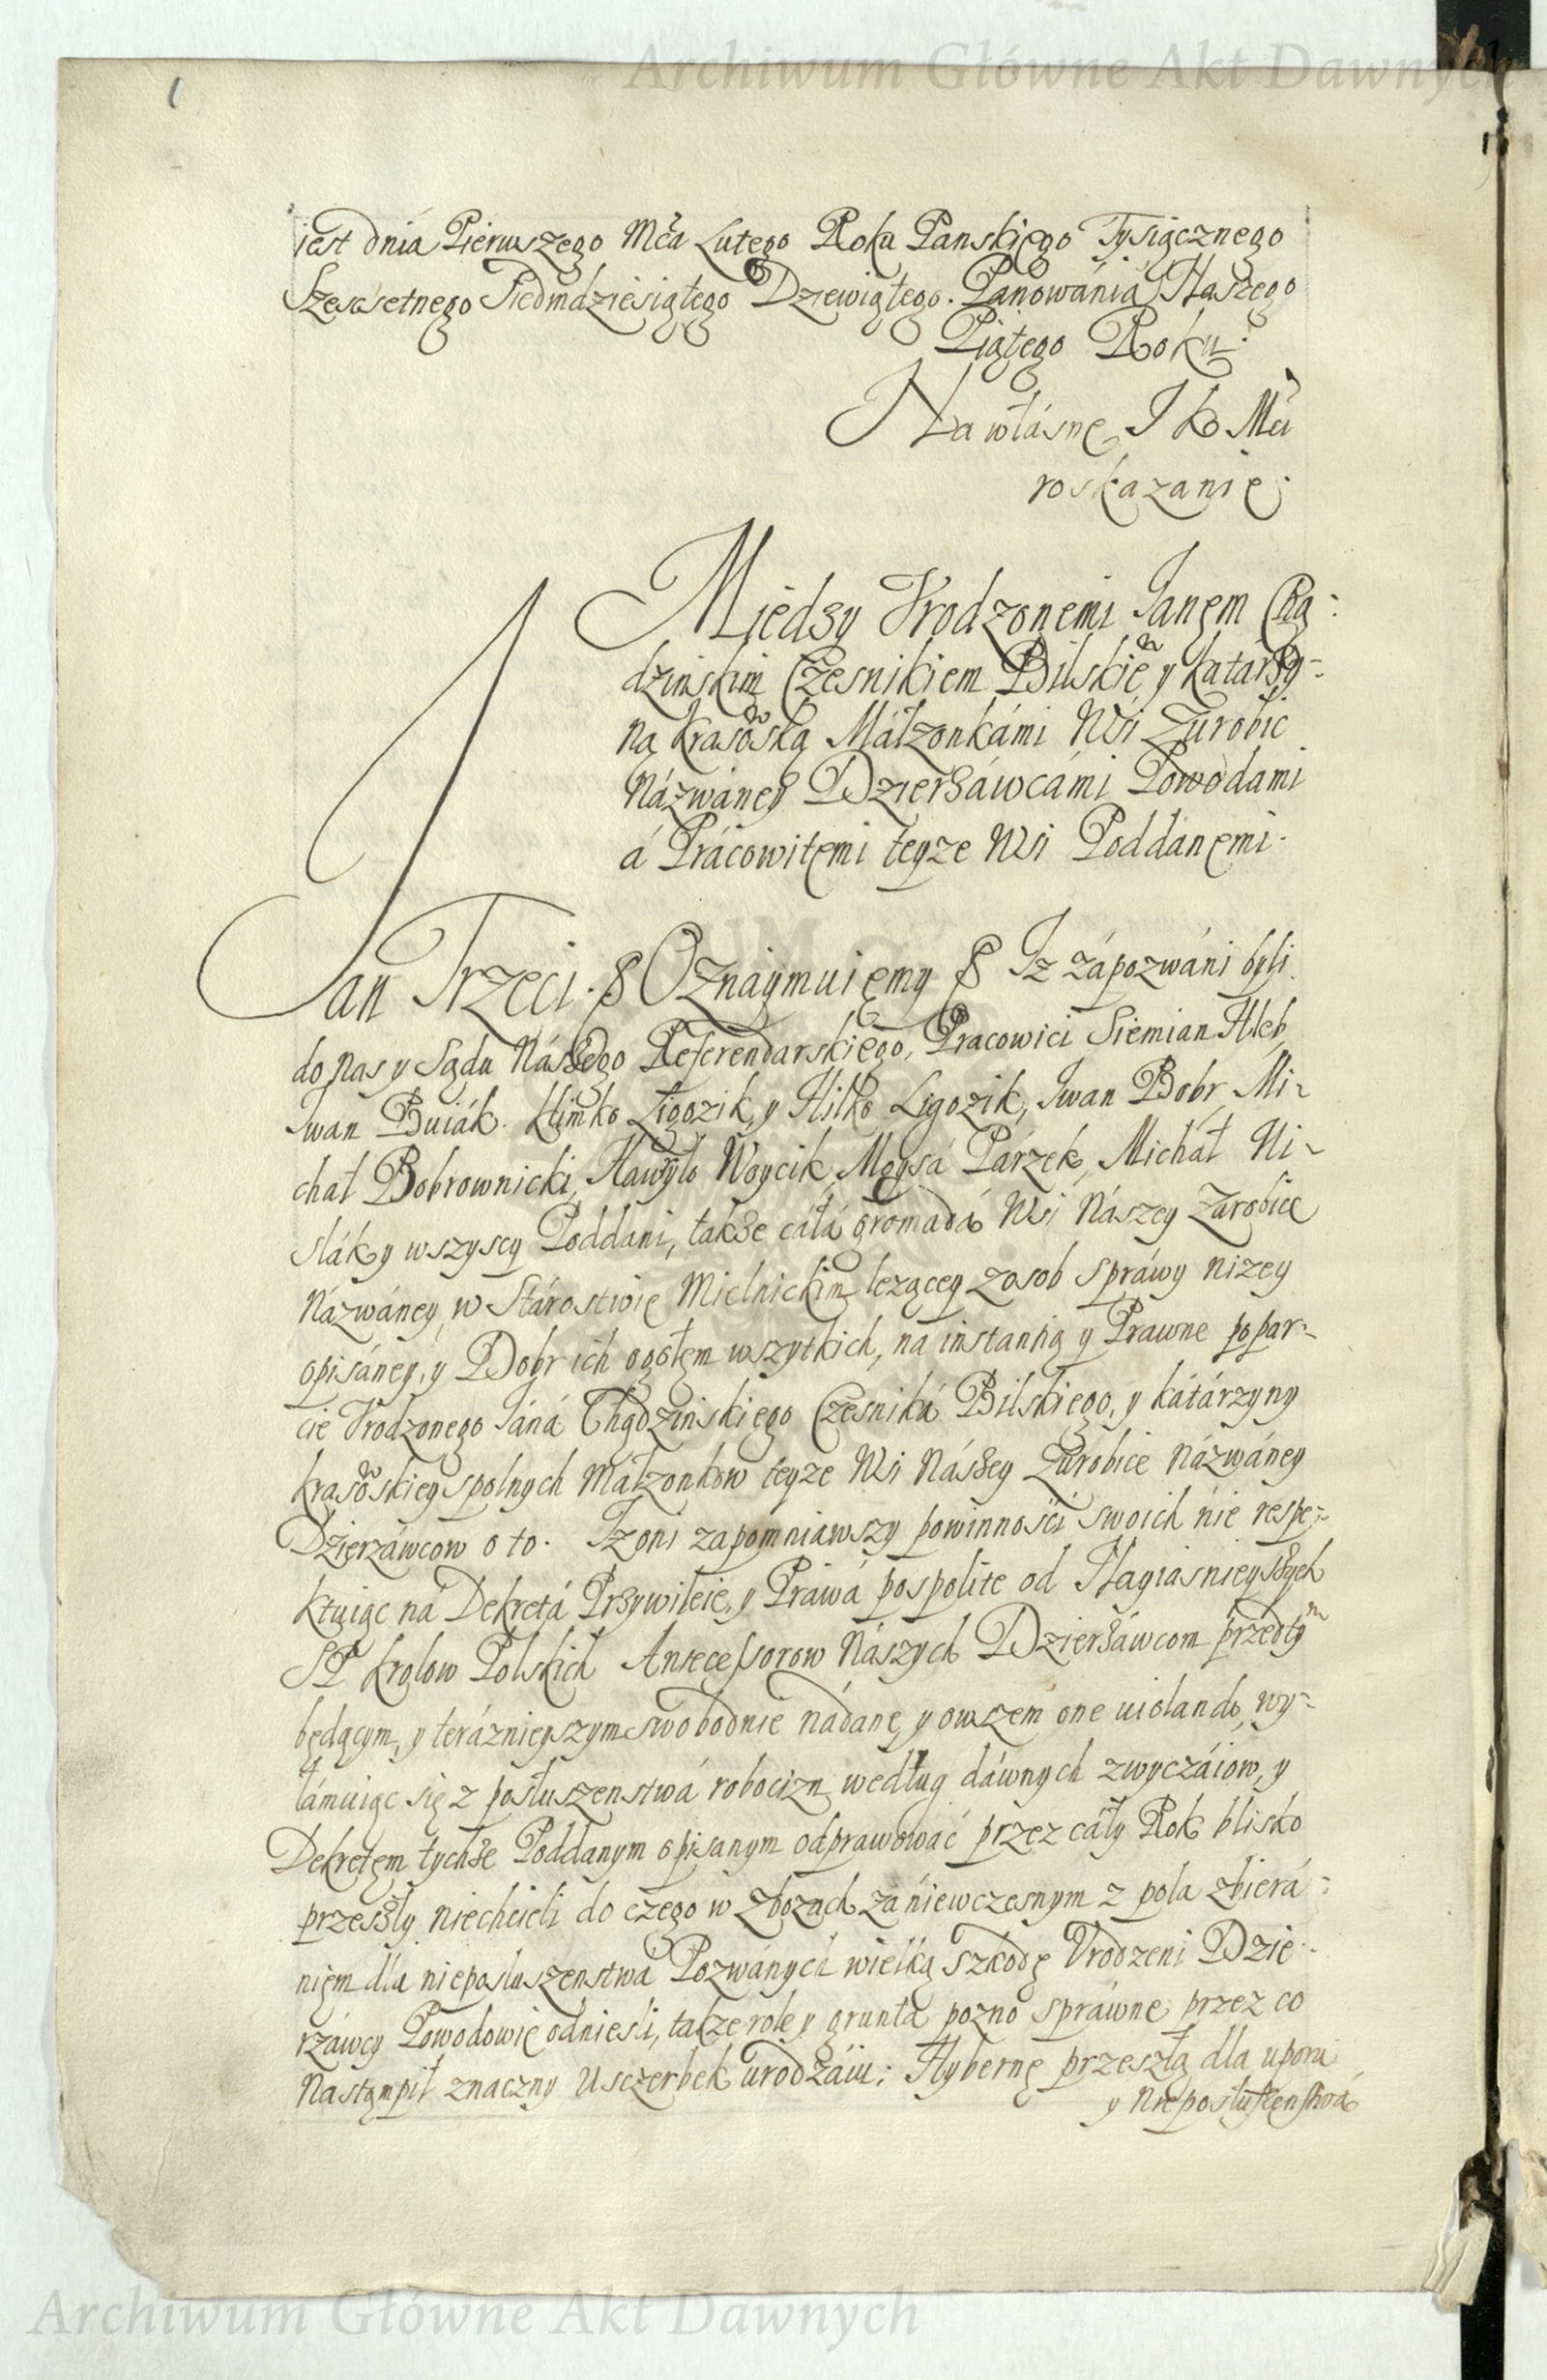 Archiwum Główne Akt Dawnych
1
iest dnia Pierwszego Mca Lutego Roku Panskięgo Tysiącznego
Szescsetnego Siedmdziesiątego Dziewiątego. Panowánia Naszego
Piątego Roku.
Na własnę J K Mci
roskazanię.
Między Vrodzonemi Janęm Chą-
dzinskim Czesnikiem Bilskiem y Katarzy-
ną Krasowską Małzonkámi Wsi Zurobic
Názwáney Dzierżáwcámi Powodami
á Prácowitęmi teyze Wsi Poddánęmi.
Jan Trzeci. § Oznaymuięmy § Iz zápozwáni byli
do Nas y Sądu Nászego Referendarskięgo, Pracowici Siemian Hleb,
Iwan Buiák. Klimko Ligozik, y Hilko Ligozik, Iwan Bobr Mi-
chał Bobrownicki, Hawryło Woycik, Moysá Párzek, Michał Ni-
słák y wszyscy Poddani, także cáłá gromadá Wsi Nászey Zurobice
Názwáney, w Stárostwię Mielnickim lezącey z osob spráwy nizey
opisáney, y Dobr ich ogółęm wszytkich, na instantią y Prawne popar-
cie Vrodzonego Jáná Chądzinskięgo Czesniká Bilskięgo, y Kátárzyny
Krasowskiey spolnych Małzonkow teyze Wsi Nászey Zurobice Názwáney
Dzięrzáwcow o to. Iz oni zapomniawszy powinności swoich nie respe-
ktuiąc ná Dekretá Przywileie, y Práwá pospolite od Nayiasnieyszych
SP Krolow Polskich Antecessorow Nászych Dzierżáwcom przedtym
będącym, y teráznieyszym swobodnie nádane, y owszem one uiolando, wy-
łámuiąc się z posłuszenstwá robocizn według dáwnych zwyczáiow, y
Dekretęm tychże Poddanym opisanym odprawować przez cáły Rok blisko
przeszły niechcieli do czego w zbozach zá niewczesnym z pola zbierá-
nięm dla nieposłuszenstwá Pozwánych wielką szkodę Vrodzeni Dzie-
rzáwcy Powodowię odniesli, takze role y grunta pozno spráwne przez co
Nastąmpił znaczny Usczerbek urodzáiu; Hybernę przeszłą dla uporu
y Nieposłuszenstwá
Archiwum Główne Akt Dawnych